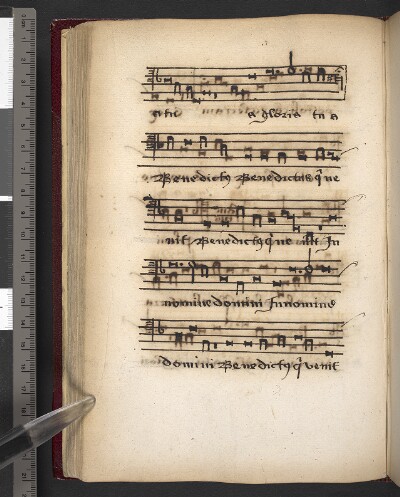 a gloria tua
Benedictꝰ Benedictus q̃ ve
nit Benedictꝰ q̃ ve nit In
nomine domini In nomine
domini Benedictꝰ q̃ venit